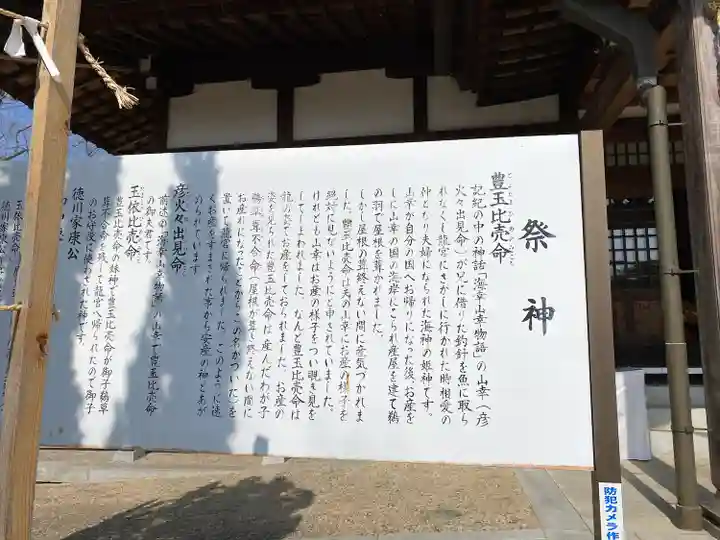 祭神
豊玉比売命
記紀の中の神話「海幸山幸物語」の山幸（彦
火々出見命）が兄に借りた釣針を魚に取ら
れなくし龍宮にさがしに行かれた時相愛の
仲となり夫婦になられた海神の姫神です。
山幸が自分の国へお帰りになった後、お産を
しに山幸の国の海岸にこられ産屋を建て鵜
の羽で屋根を葺かれました。
しかし屋根の葺終えない間に産気づかれま
した。豊玉比売命は夫の山幸にお産の様子を
絶対に見ないようにと申されていました。
けれども山幸はお産の様子をつい覗き見を
してしまわれました。なんと豊玉比売命は
龍の姿でお産をしておられました。お産の
姿を見られた豊玉比売命は産んだわが子
鵜草葺不合命（屋根が葺き終えない間に
お産れになったことからこの名がついた）を
置いて龍宮に帰られました。このように速
くお産をすまされた事から安産の神とあが
められています
彦火々出見命
前述の「海幸山幸物語」の山幸で豊玉比売命
の御夫君です。
玉依比売命
豊玉比売命の妹神で豊玉比売命が御子鵜草
葺不合命を残して龍宮へ帰られたので御子
のお守役に使わされた神です。
徳川家康公
防犯カメラ作